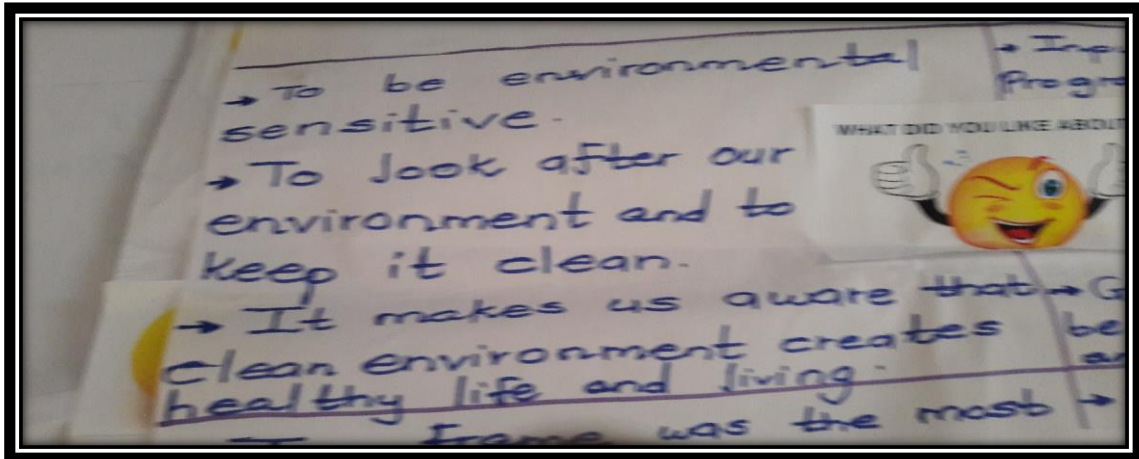 → To be environmental
sensitive.
→ To look after our
environment and to
keep it clean.
→ It makes us aware that
clean environment creates
healthy life and living.
frame was the most
→
Progre
WHAT DID YOU LIKE ABOUT
→ G
be
→